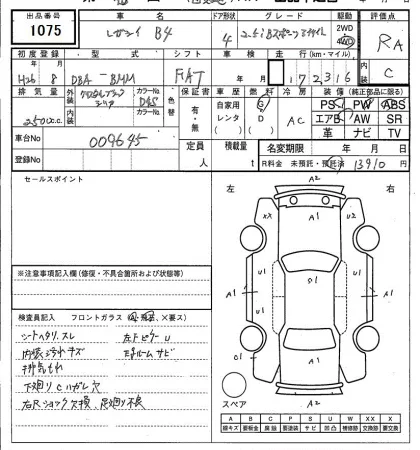 出品番号 車名 ドア形状 グレード 駆動 評価点
1075 レガシィ B4 4 2.5i Bスポーツアイサイト 2WD 4WD RA
初度登録 型式 シフト 車検 走行(km・マイル) 内装
H26 8 DBA-BMM FAT 172316 C
排気量 外装 カラーNo. 内装 カラーNo. 色替 保証書 車歴 燃料 冷房 装備(純正品部に限る)
2500c.c. D4S 有・無 自家用 レンタ G D AC PS PW ABS
エアB AW SR
革 ナビ TV
車台No 009645
登録No 定員 人 積載量 t 名変期限 年 月 日
R料金 未預託・預託済 13910 円
セールスポイント
左 右
A2
XX A1 U2
U1 U1
A1 D1 A1
O1 A1
A2
スペア
※注意事項記入欄(修復・不具合箇所および状態等)
検査員記入 フロントガラス(A、飛石、×要ス)
シートヘタリ、スレ 左Fピラー U
内装ヨゴレキズ ルームサビ
排気もれ
下廻りCハガレ穴
右Rショック欠損、足廻り不良
A B C P S U W X XX
線キズ 要板金 腐蝕 要塗装 サビ 凹凸 補修跡 要交換 交換